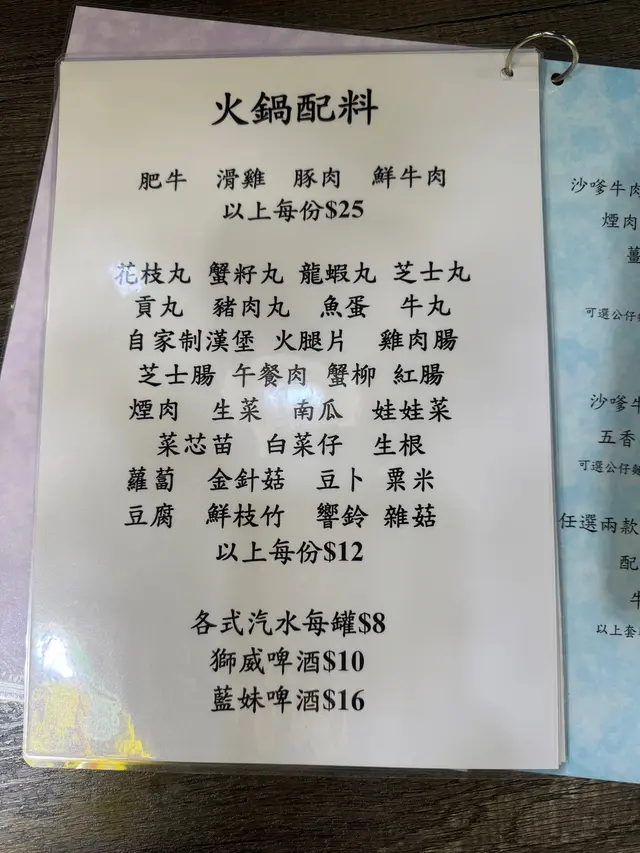 火鍋配料
肥牛 滑雞 豚肉 鮮牛肉
以上每份$25
花枝丸 蟹籽丸 龍蝦丸 芝士丸
貢丸 豬肉丸 魚蛋 牛丸
自家制漢堡 火腿片 雞肉腸
芝士腸 午餐肉 蟹柳 紅腸
煙肉 生菜 南瓜 娃娃菜
菜芯苗 白菜仔 生根
蘿蔔 金針菇 豆卜 粟米
豆腐 鮮枝竹 響鈴 雜菇
以上每份$12
各式汽水每罐$8
獅威啤酒$10
藍妹啤酒$16
沙嗲牛肉
煙肉
薑
可選公仔
沙嗲牛
五香
可選公仔麵
任選兩款
配
牛
以上套